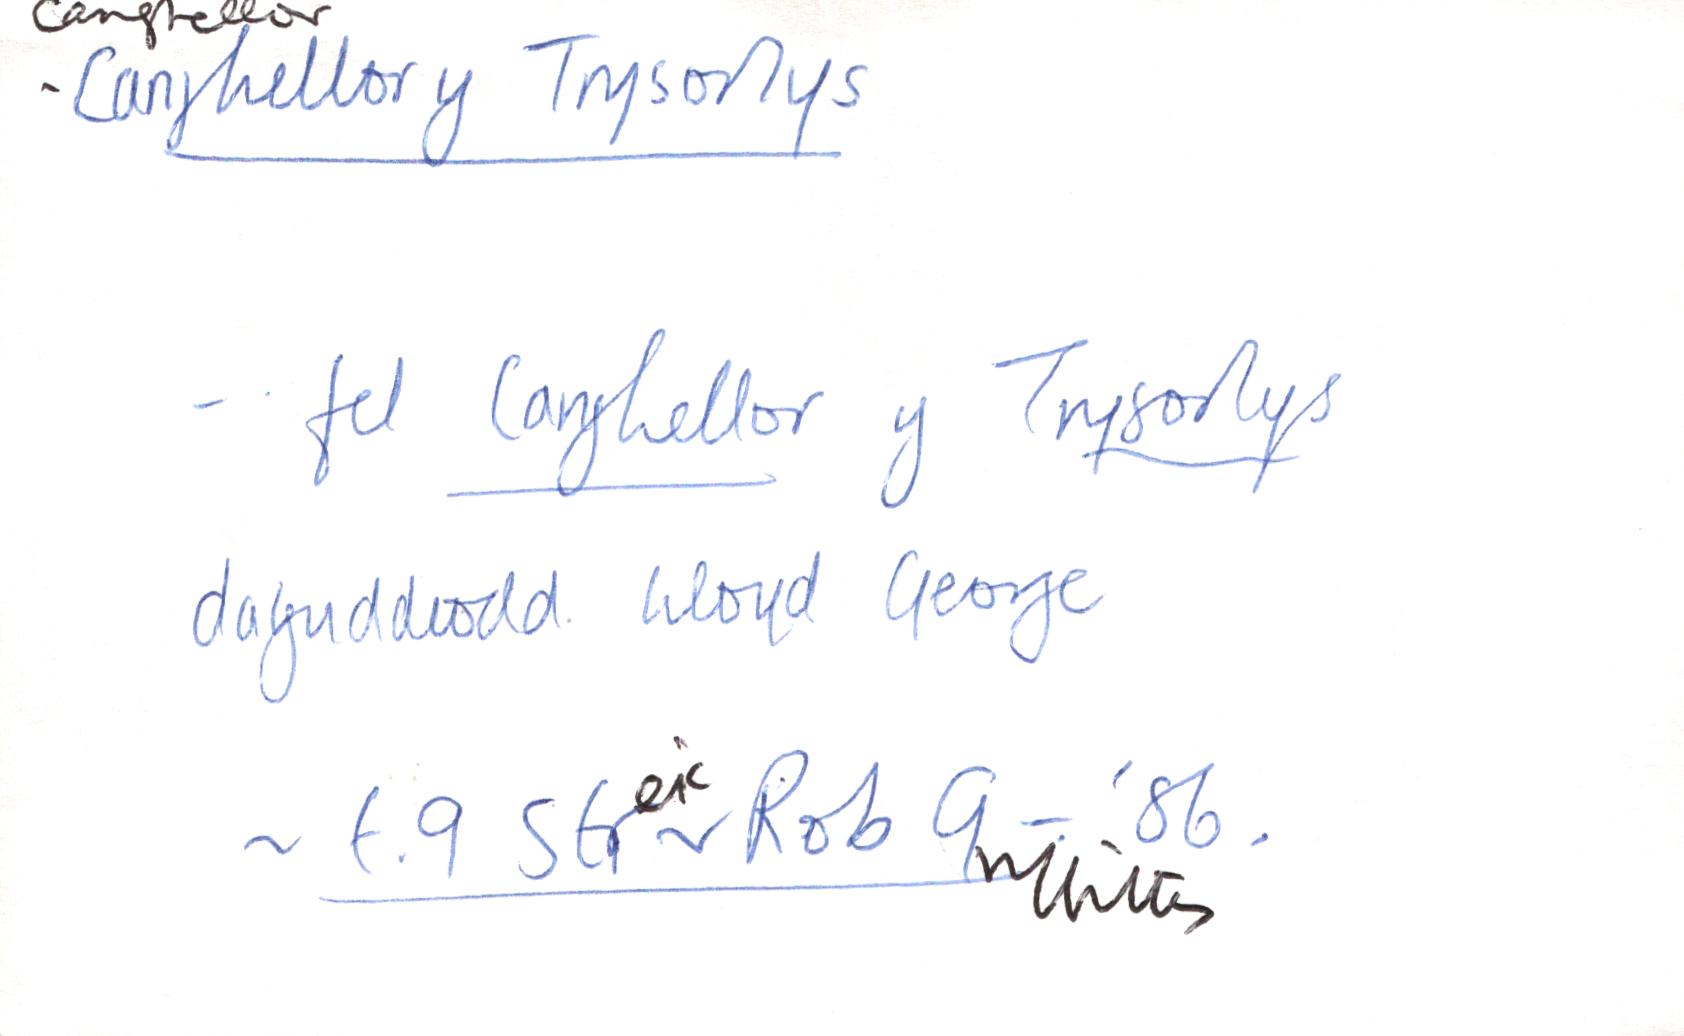 Canghellor
- Canghellor y Trysorlys
- fel Canghellor y Trysorlys
dagnddiodd Lloyd George
~ t.9 Streic ~ Rob Griffiths - '86.